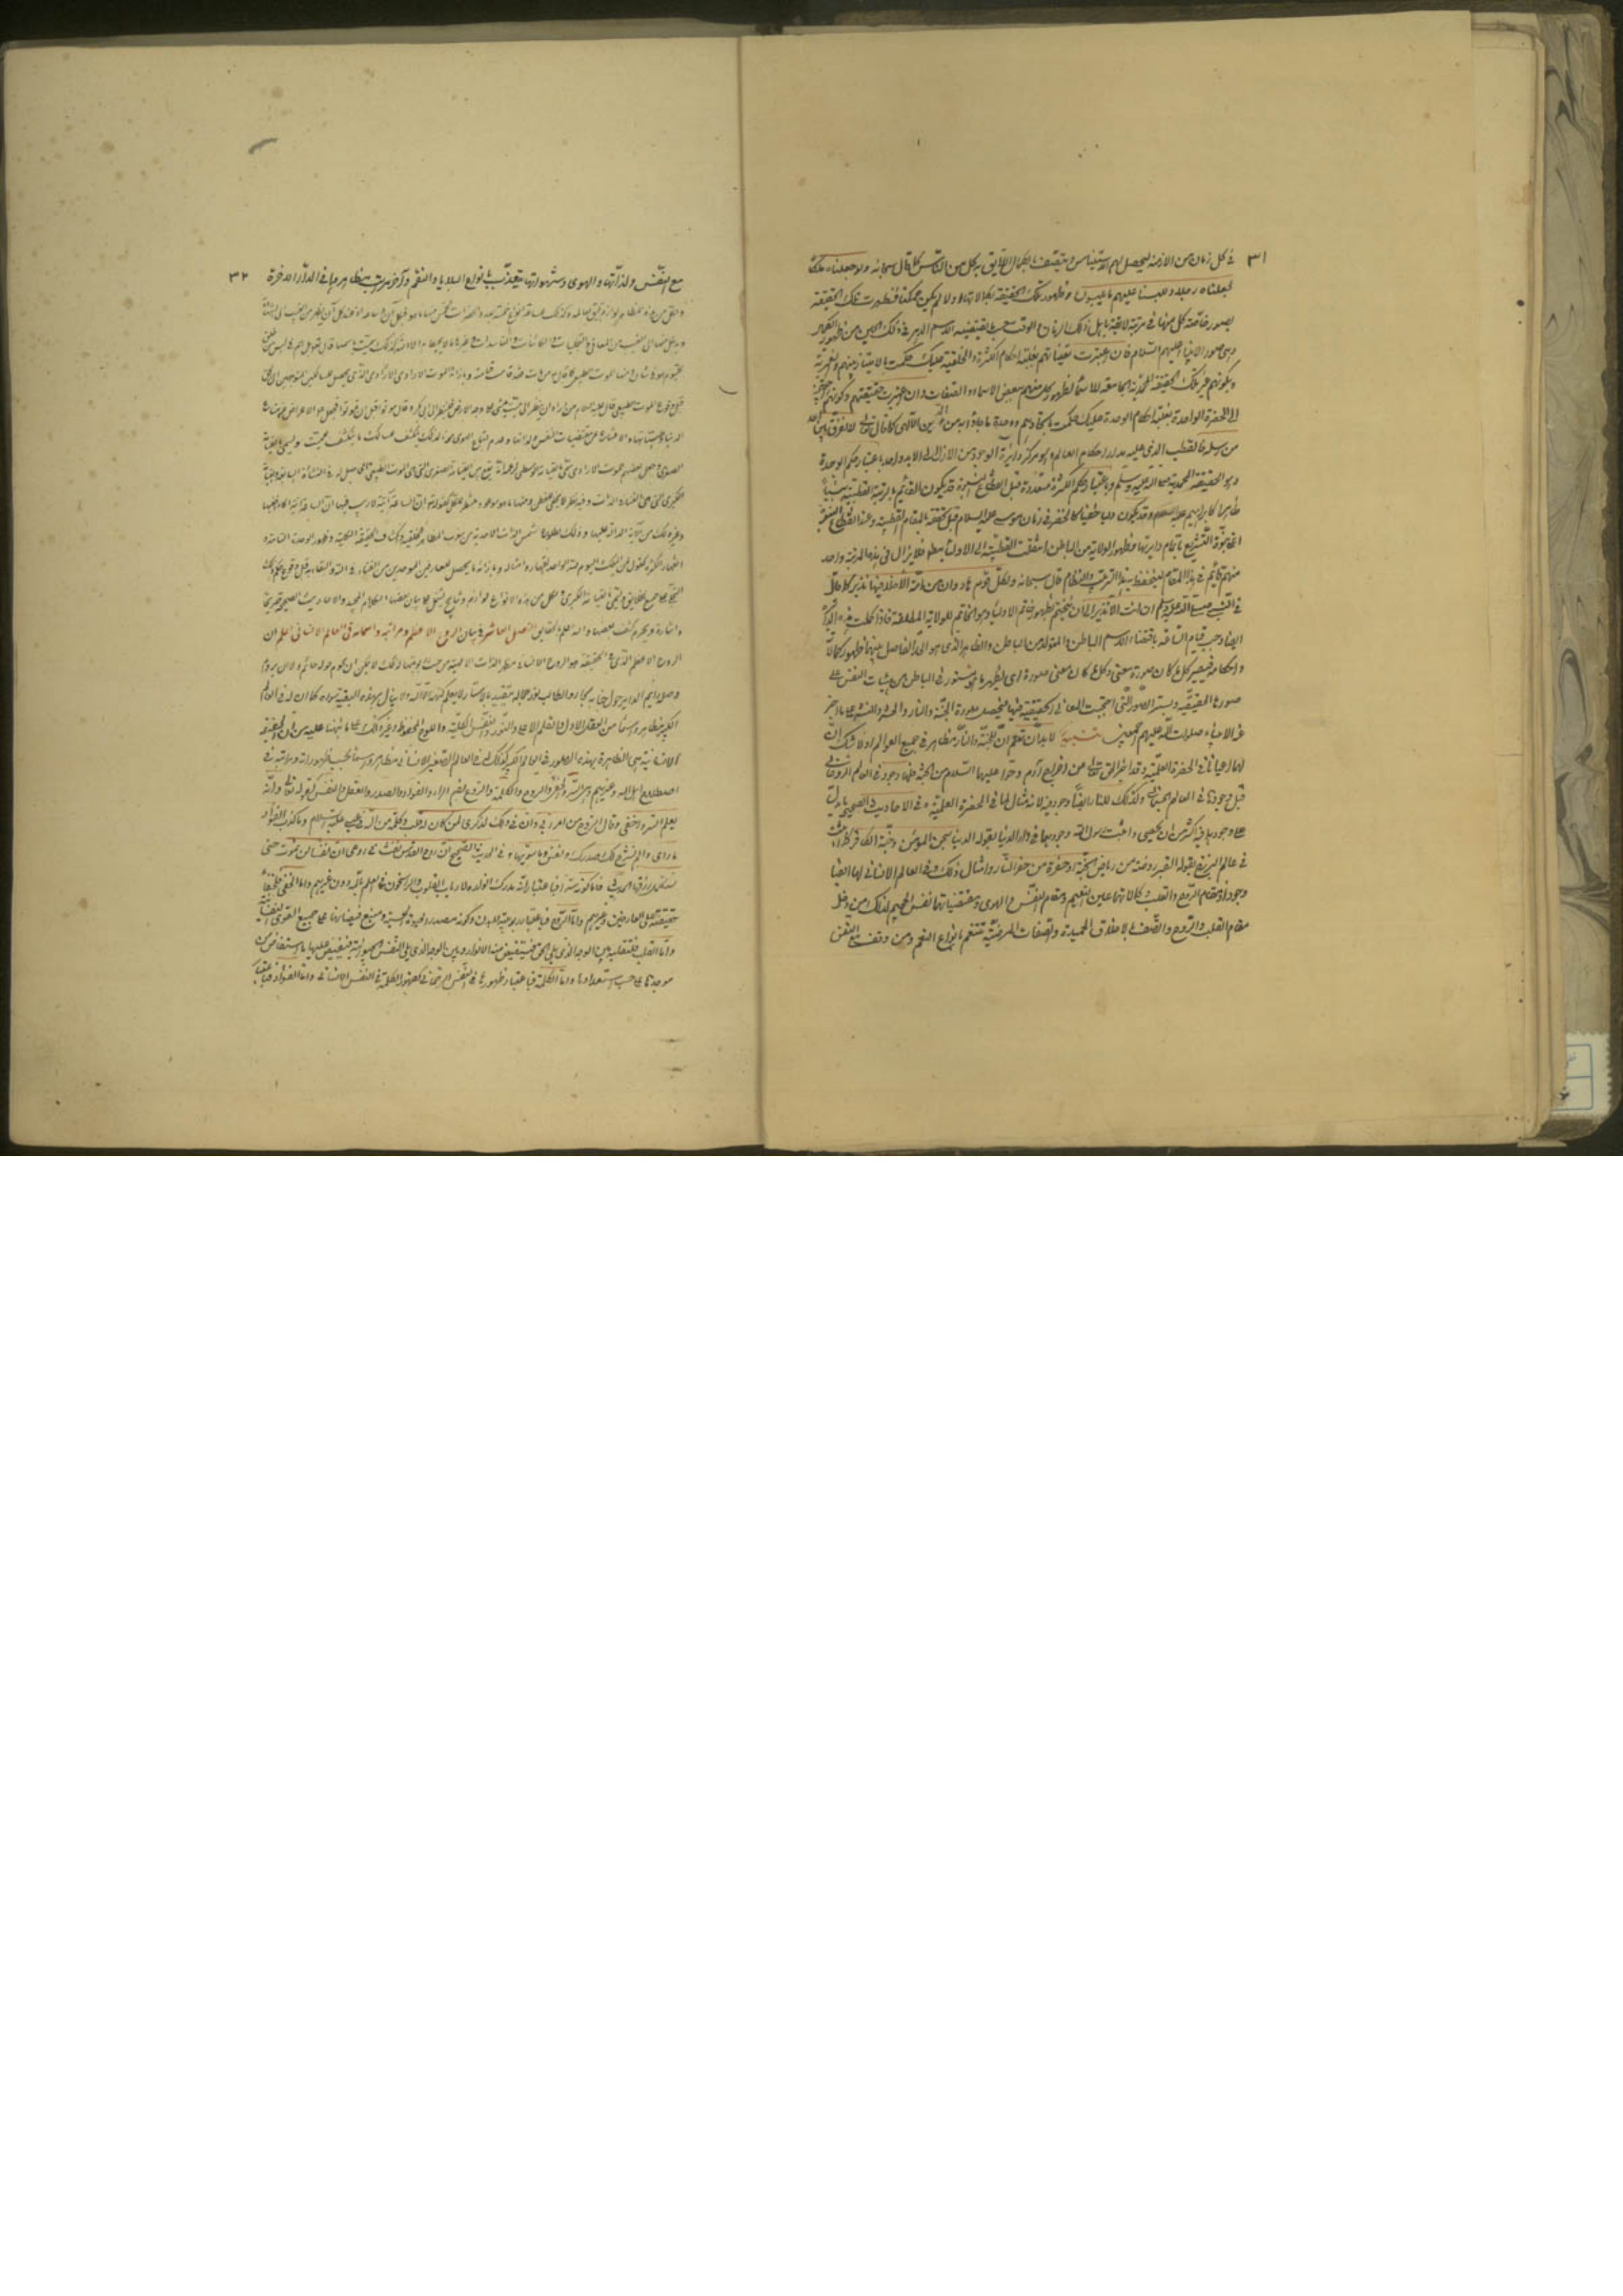 ٣١
في كل زمان من الازمنة ليحصل لهم الاستيناس ويتصف بالكمال اللايق به كل من الناس كما قال سبحانه ولو جعلناه ملكا
لجعلناه رجلا وللبسنا عليهم ما يلبسون وظهور تلك الحقيقة بكمالاتها اولا لم يكن ممكنا فظهرت تلك الحقيقة
بصور خاصة كل منها في مرتبة لايقة باهل ذلك الزمان والوقت حسب ما يقتضيه الاسم الدهر في ذلك الحين من ظهور الكمال
وهي صور الانبياء عليهم السلام فان اعتبرت تعيناتهم بغلبة احكام الكثرة والخلقية عليك حكمت بالامتياز بينهم والغيرية
وبكونهم غير تلك الحقيقة المحمدية الجامعة للاسماء لظهور كل منهم ببعض الاسماء والصفات وان اعتبرت حقيقتهم وكونهم راجعين
الى الحضرة الواحدية بغلبة احكام الوحدة عليك حكمت باتحادهم ووحدة ما جاؤا به من الدين الالهي كما قال تعالى لا نفرق بين احد
من رسله فالقطب الذي عليه مدار احكام العالم وهو مركز دائرة الوجود من الازل الى الابد واحد باعتبار حكم الوحدة
وهو الحقيقة المحمدية صلى الله عليه وسلم وباعتبار حكم الكثرة متعددة قبل انقطاع النبوة قد يكون القائم بالمرتبة القطبية نبيا
ظاهرا كابراهيم عليه السلام وقد يكون وليا خفيا كالخضر في زمان موسى عليه السلام قبل تحققه بالمقام القطبية وعند انقطاع النبوة
اعني نبوة التشريع باتمام دايرتها وظهور الولاية من الباطن انتقلت القطبية الى الاولياء مطلقا فلا يزال في هذه المرتبة واحد
منهم قائم في هذا المقام لينحفظ به هذا الترتيب والنظام قال سبحانه ولكل قوم هاد وان من امة الا خلا فيها نذير كما قال
في النبي صلى الله عليه وسلم ان انت الا نذير الى ان ينختم بظهور خاتم الاولياء وهو الخاتم للولاية المطلقة فاذا كملت هذه الدائرة
ايضا وجب قيام الساعة باقتضاء الاسم الباطن والمتولد من الباطن والظاهر الذي هو الحد الفاصل بينهما ظهور كمالاته
واحكامه فيصير كل ما كان صورة معنى وكل ما كان معنى صورة اي يظهر ما هو مستور في الباطن من هيئات النفس على
صورها الحقيقية ويستر الصور التي احتجبت المعاني الحقيقية فيها فيحصل صورة الجنة والنار والحشر والنشر على ما اخبر
عنه الانبياء صلوات الله عليهم اجمعين تنبيه لا بد ان تعلم ان للجنة والنار مظاهر في جميع العوالم اذ لا شك ان
لهما اعيانا في الحضرة العلمية وقد اخبر الحق تعالى عن اخراج آدم وحوا عليهما السلام من الجنة فلها وجود في العالم الروحاني
قبل وجودها في العالم الجسماني وكذلك للنار ايضا وجود فيه لانه مثال لما في الحضرة العلمية وفي الاحاديث الصحيحة ما يدل
على وجودهما فيه اكثر من ان يحصى واثبت رسول الله وجودهما في دار الدنيا بقوله الدنيا سجن المؤمن وجنة الكافر واثبت
في عالم البرزخ بقوله القبر روضة من رياض الجنة او حفرة من حفر النار وامثال ذلك وفي العالم الانساني لهما ايضا
وجود اذ مقام الروح والقلب وكمالاتهما عين النعيم ومقام النفس والهوى ومقتضياتهما نفس الجحيم لذلك من دخل
مقام القلب والروح واتصف بالاخلاق الحميدة والصفات المرضية تنعم بانواع النعم ومن وقف مع النفس
٣٢
مع النفس ولذاتها والهوى وشهواتها يتعذب بانواع البلايا والنقم وآخر مراتب مظاهرهما في الدار الآخرة
ولكل من هذه المظاهر لوازم يليق بعالمه وكذلك للساعة انواع خمسة بعدد الحضرات الخمس منها ما هو في كل آن وساعة اذ عند كل آن يظهر من الغيب الى الشهادة
ويدخل منها الى الغيب من المعاني والتجليات والكائنات والفاسدات وغيرها ما لا يحيط به الا الله لذلك سميت باسمها قال تعالى بل هم في لبس من خلق
جديد كل يوم هو في شان ومنها الموت الطبيعي كما قال من مات فقد قامت قيامته وبازائه الموت الارادي الذي يحصل للسالكين المتوجهين الى الحق
قبل وقوع الموت الطبيعي قال عليه السلام من اراد ان ينظر الى ميت يمشي على وجه الارض فلينظر الى ابي بكر وقال موتوا قبل ان تموتوا فجعل الاعراض عن متاع
الدنيا وطيباتها والامتناع عن مقتضيات النفس ولذاتها وعدم اتباع الهوى موتا لذلك ينكشف للسالك ما ينكشف للميت ويسمى بالقيامة
الصغرى وجعل بعضهم الموت الارادي مسمى بالقيامة الوسطى لزعمه انه يقع بين القيامة الصغرى التي هي الموت الطبيعي الحاصل له في النشاة السابقة والقيامة
الكبرى التي هي الفناء في الذات وفيه نظر لا يخفى على الفطن ومنها ما هو موعود منتظر للكل كقوله تعالى ان الساعة آتية لا ريب فيها ان الساعة آتية اكاد اخفيها
وغير ذلك من الآيات الدالة عليها وذلك بطلوع شمس الذات الاحدية من مغرب المظاهر الخلقية وانكشاف الحقيقة الكلية وظهور الوحدة التامة
وانقهار الكثرة كقوله لمن الملك اليوم لله الواحد القهار وامثاله وبازائه ما يحصل للعارفين الموحدين من الفناء في الله والبقاء به قبل وقوع حكم ذلك
التجلي على جميع الخلايق ويسمى بالقيامة الكبرى ولكل من هذه الانواع لوازم ونتايج يشتمل على بيان بعضها الكلام المجيد والاحاديث الصحيحة صريحا
واشارة ويحرم كشف بعضها والله اعلم بالحقايق الفصل العاشر في بيان الروح الاعظم ومراتبه واسمائه في العالم الانساني اعلم ان
الروح الاعظم الذي في الحقيقة هو الروح الانساني مظهر الذات الالهية من حيث ربوبيتها لذلك لا يمكن ان يحوم حوله حائم ولا ان يروم
وصله رائم الداير حول جنابه يحار والطالب نور جماله يتقيد بالاستار لا يعلم كنهه الا الله ولا ينال بهذه البغية سواه كما ان له في العالم
الكبير مظاهر واسماء من العقل الاول والقلم الاعلى والنور والنفس الكلية واللوح المحفوظ وغير ذلك على ما نبهنا عليه من ان الحقيقة
الانسانية هي الظاهرة بهذه الصور في العالم الكبير كذلك له في العالم الصغير الانساني مظاهر واسماء بحسب ظهوراته ومراتبه في
اصطلاح اهل الله وغيرهم وهي السر والخفي والروح والكلمة والروع بضم الراء والفؤاد والصدر والعقل والنفس كقوله تعالى وانه
يعلم السر واخفى وقال الروح من امر ربي وان في ذلك لذكرى لمن كان له قلب وكلمة من الله في عيسى عليه السلام وما كذب الفؤاد
ما راى والم نشرح لك صدرك ونفس وما سويها وفي الحديث الصحيح ان روح القدس نفث في روعي ان نفسا لن تموت حتى
تستكمل رزقها الحديث فاما كونه سرا فباعتبار انه يدرك انواره الا ارباب القلوب والراسخون في العلم بالله دون غيرهم واما الخفي فلخفاء
حقيقته على العارفين وغيرهم واما الروح فباعتبار ربوبيته للبدن وكونه مصدر الحيوة الحسية ومنبع فيضانها على جميع القوى النفسانية
واما القلب فلتقلبه بين الوجه الذي يلي الحق فيستفيض منه الانوار وبين الوجه الذي يلي النفس الحيوانية فيفيض عليها ما استفاض من
موجدها على حسب استعدادها واما الكلمة فباعتبار ظهورها في النفس الرحماني كظهور الكلمة في النفس الانساني واما الفؤاد فباعتبار